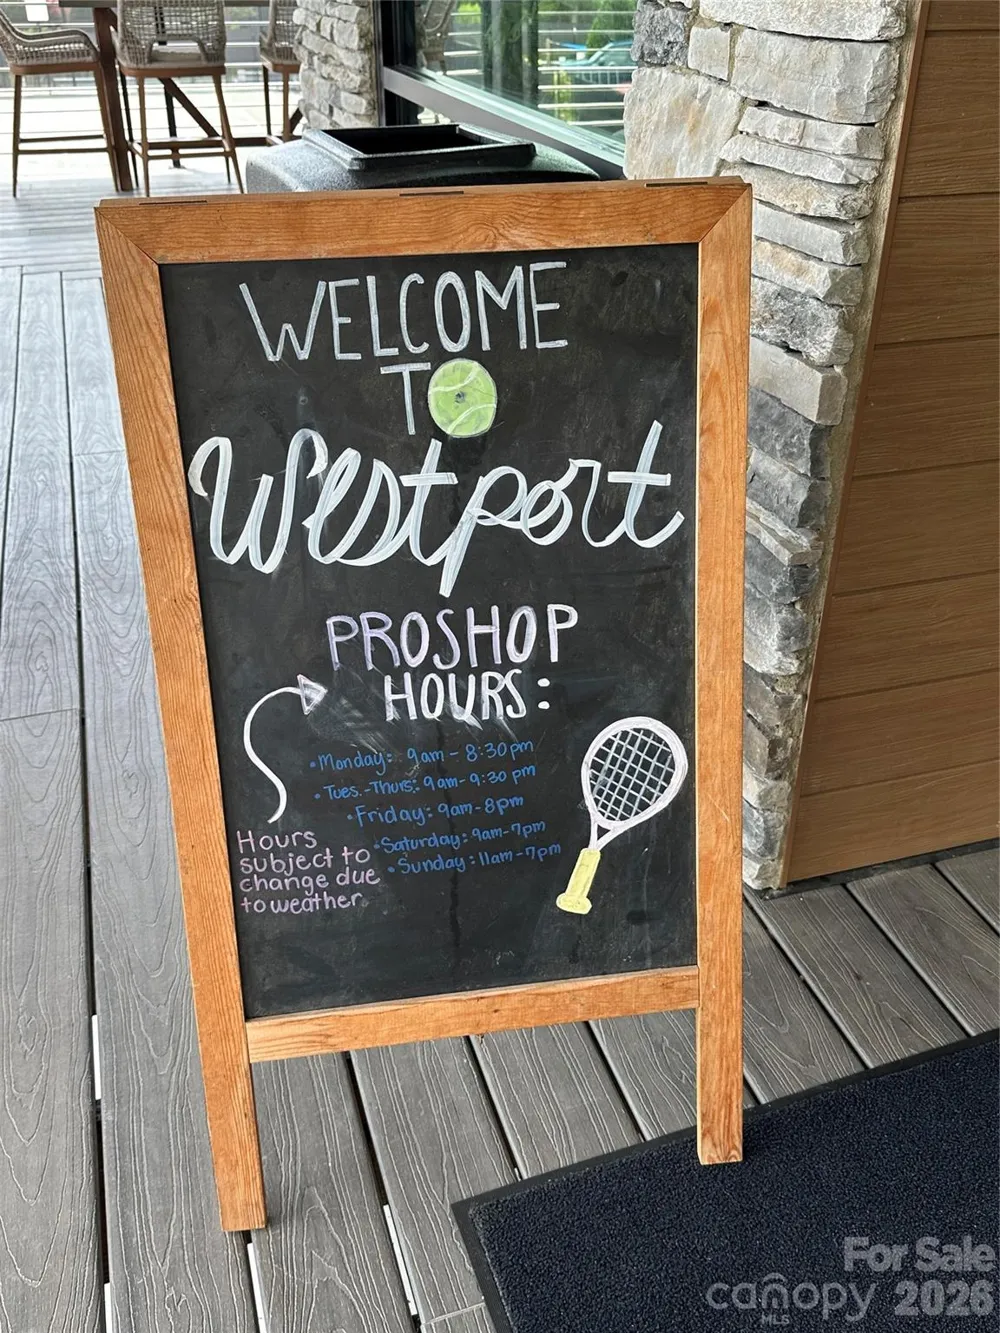 WELCOME
TO
Westport
PROSHOP
HOURS:
• Monday: 9am - 8:30pm
• Tues.-Thurs.: 9am - 9:30pm
• Friday: 9am - 8pm
• Saturday: 9am - 7pm
• Sunday: 11am - 7pm
Hours
subject to
change due
to weather
For Sale
canopy 2026
MLS